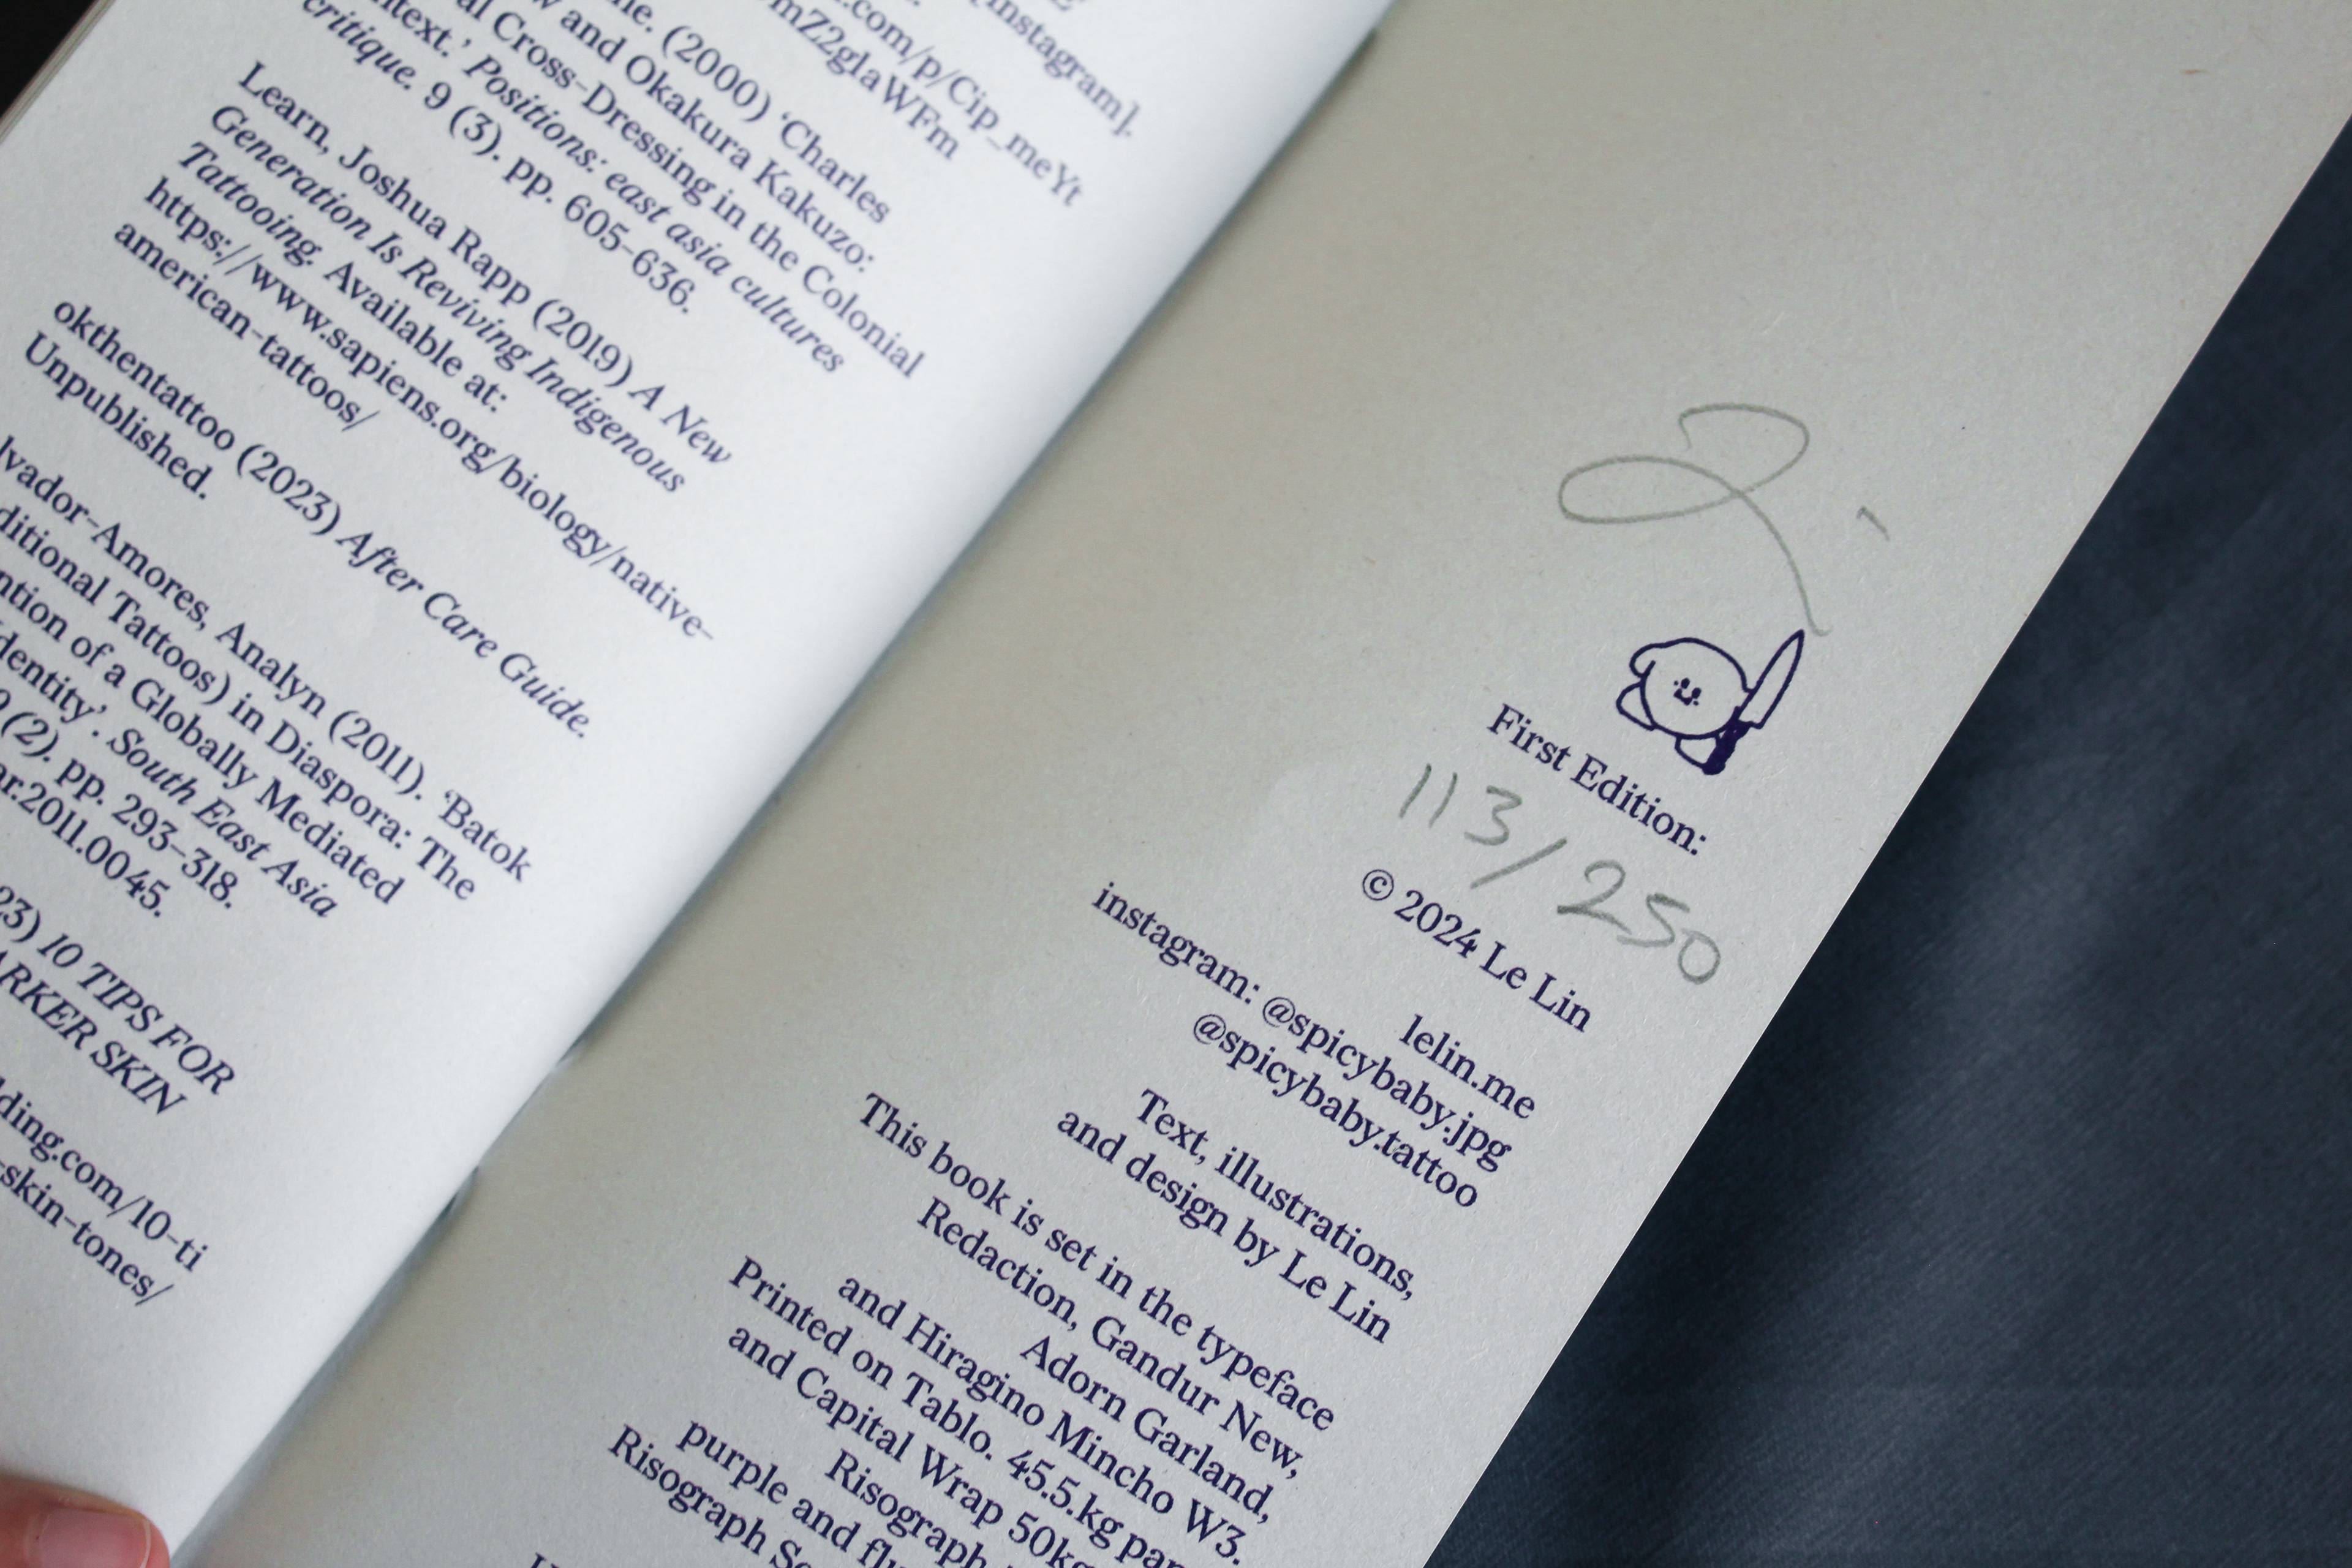 [instagram].
.com/p/Cip_meYt
mZ2glaWFm
(2000) 'Charles
and Okakura Kakuzo:
Cross-Dressing in the Colonial
Positions: east asia cultures
critique. 9 (3). pp. 605-636.
Learn, Joshua Rapp (2019) A New
Generation Is Reviving Indigenous
Tattooing. Available at:
https://www.sapiens.org/biology/native-
american-tattoos/
okthentattoo (2023) After Care Guide.
Unpublished.
lvador-Amores, Analyn (2011). 'Batok
ditional Tattoos) in Diaspora: The
ntion of a Globally Mediated
dentity'. South East Asia
(2). pp. 293-318.
ar.2011.0045.
23) 10 TIPS FOR
ARKER SKIN
ding.com/10-ti
-skin-tones/
First Edition:
113/250
© 2024 Le Lin
lelin.me
instagram: @spicybaby.jpg
@spicybaby.tattoo
Text, illustrations,
and design by Le Lin
This book is set in the typeface
Redaction, Gandur New,
Adorn Garland,
and Hiragino Mincho W3.
Printed on Tablo. 45.5.kg
and Capital Wrap 50kg
Risograph
purple and
Risograph